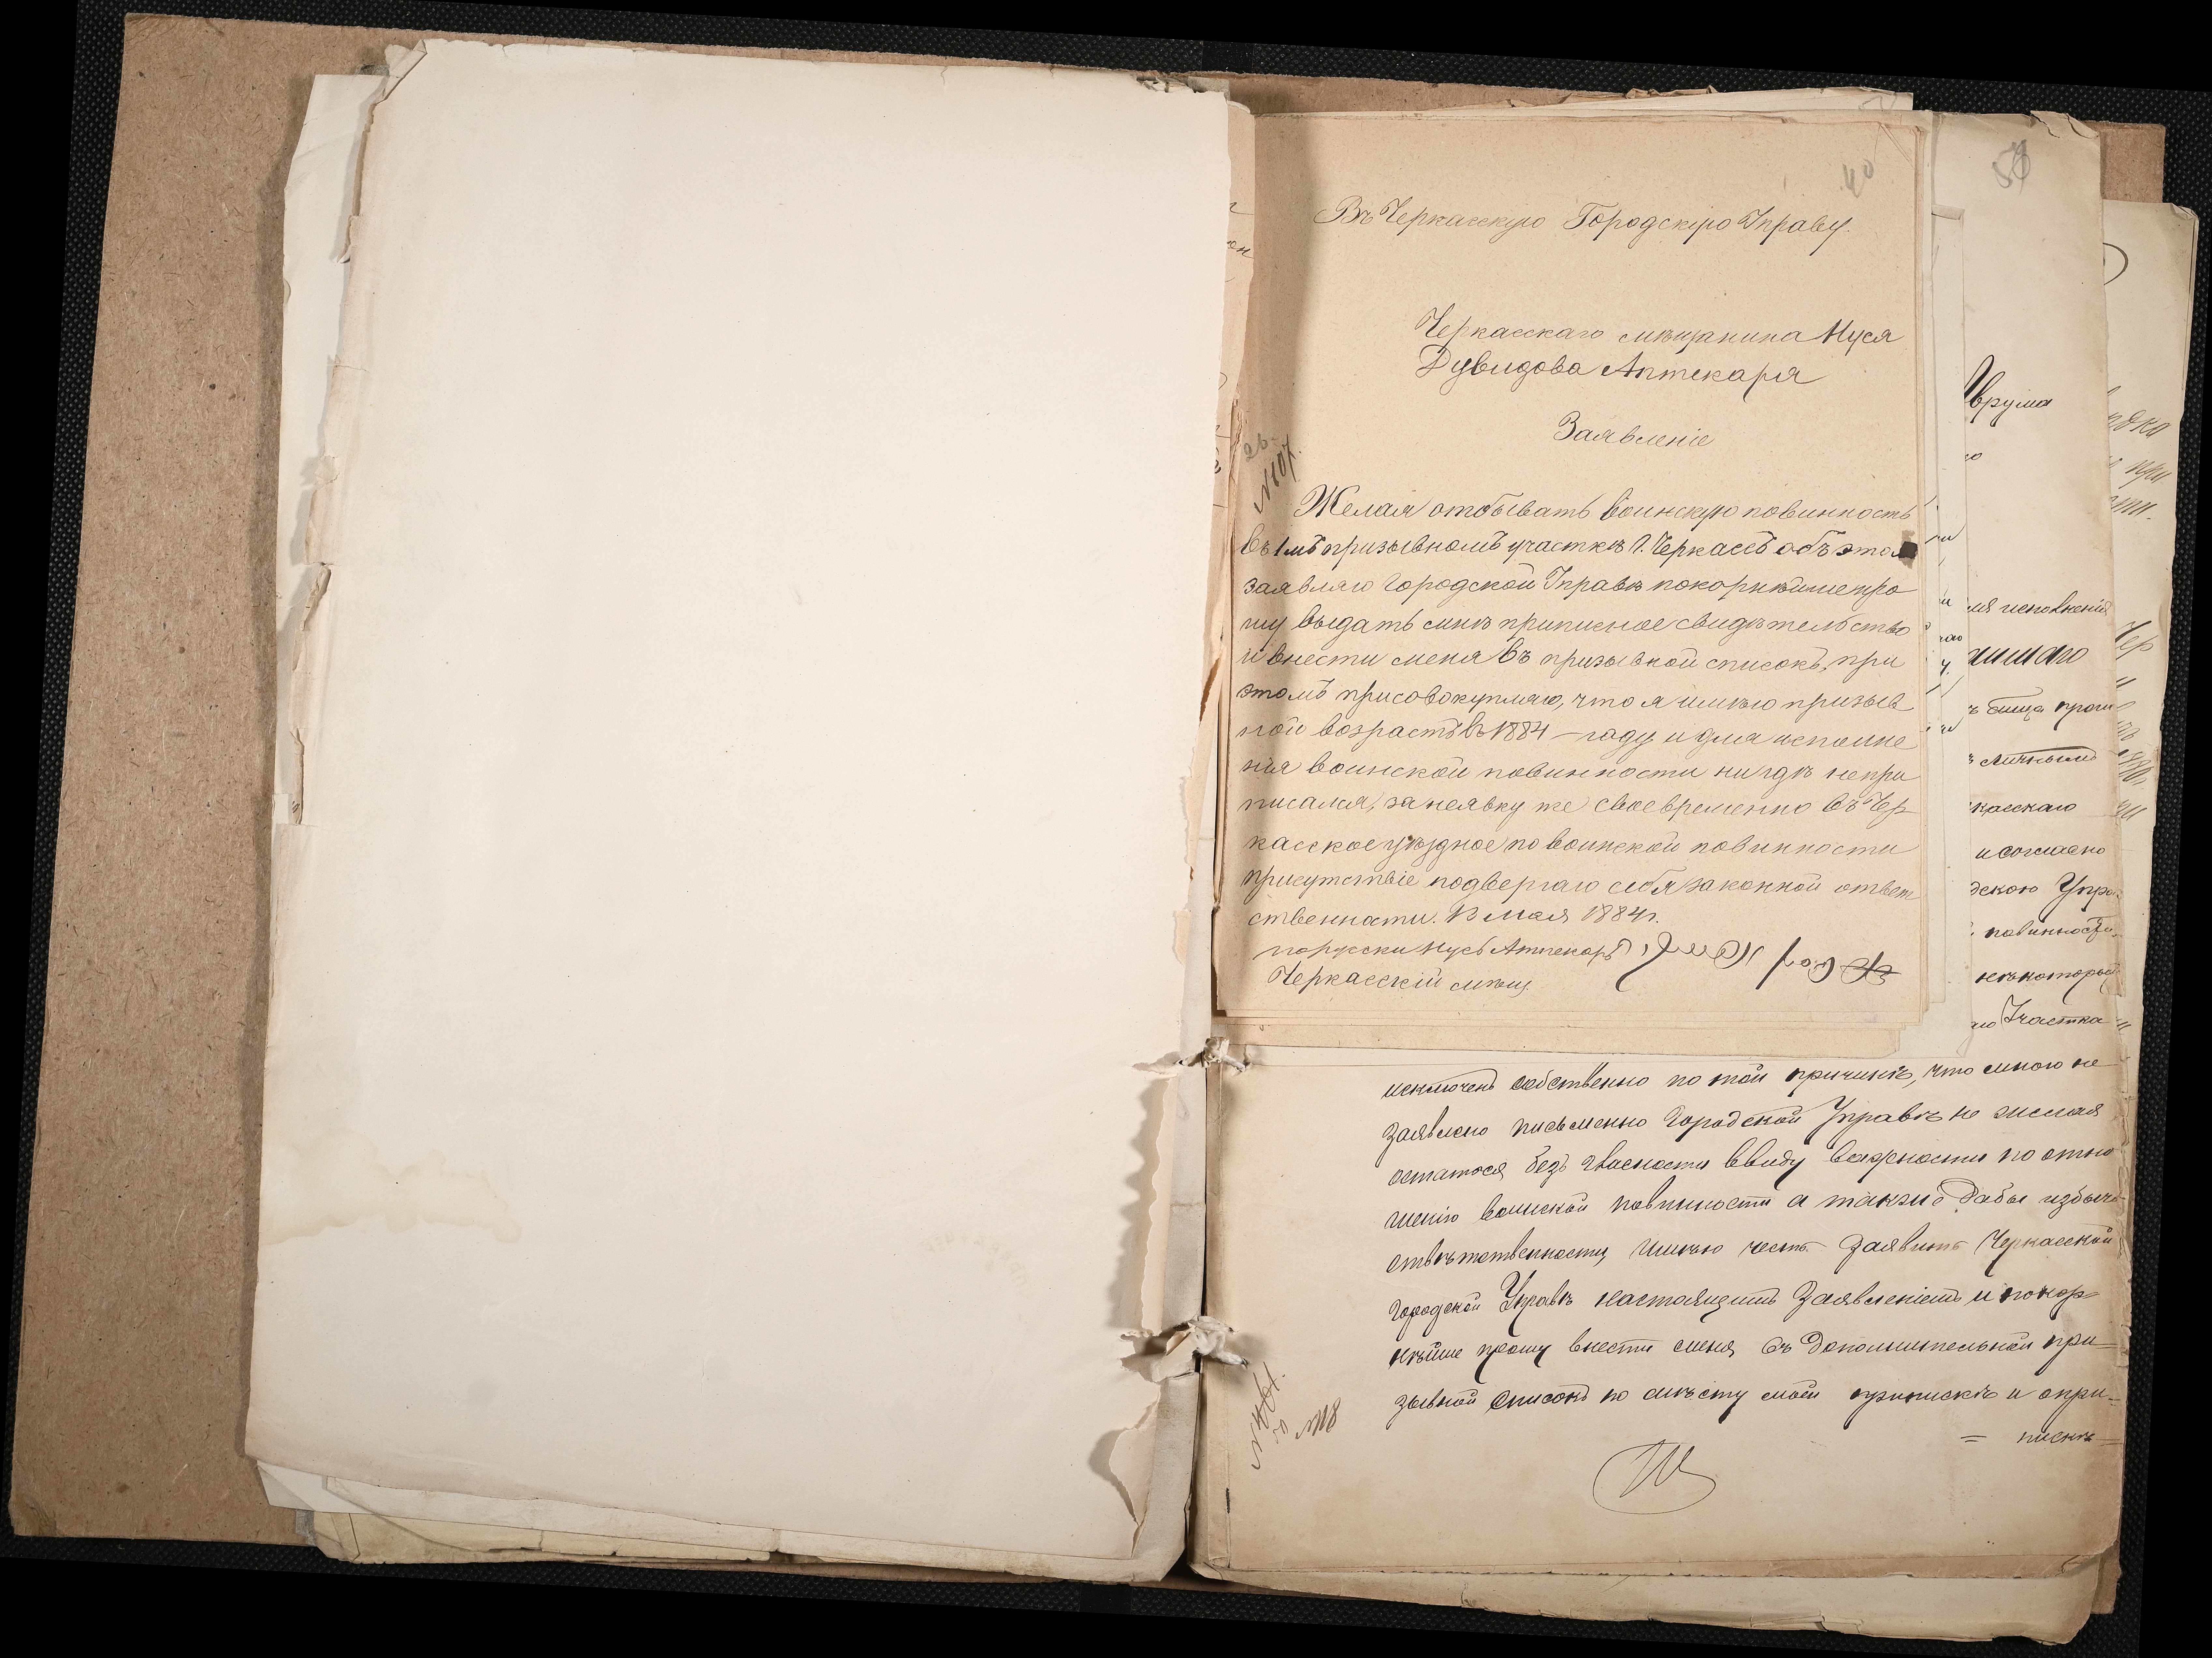 40
Въ Черкасскую Городскую Управу.
Черкасскаго мѣщанина Нуся
Дувидова Аптекаря
Заявленіе
№107.
Желая отбывать воинскую повинность
въ 1мъ призывномъ участкѣ г. Черкассъ объ этом
заявляю Городской Управѣ покорнѣйше про
шу выдать мнѣ приписное свидѣтельство
и внести меня въ призывной списокъ, при
этомъ присовокупляю, что я имѣю призыв
ной возрастъ въ 1884 - году и для исполне
нія воинской повинности нигдѣ непри
писался, за неявку же своевременно въ Чер
касское уѣздное по воинской повинности
присутствіе подвергаю себя законной ответ
ственности. 12 Мая 1884 г.
порусски Нусь Аптекарь
Черкасскій мѣщ.
59
врума
ія исполненія
ъ Бица прожи
ъ личный
касскаго
и согласно
дскою Упра
повинности
нѣкоторый
аго Участка
исключенъ собственно по той причинѣ, что мною не
заявлено письменно Городской Управѣ не желая
остаться безъ гласности ввиду важности по отно
шенію воинской повинности а также дабы избычь
отвѣтственности, имѣю честь заявить Черкасской
Городской Управѣ настоящимъ заявленіемъ и покор-
нѣйше прошу внести меня въ дополнительной при-
зывной списокъ по мѣсту моей припискѣ и о при-
= пискѣ =
№18